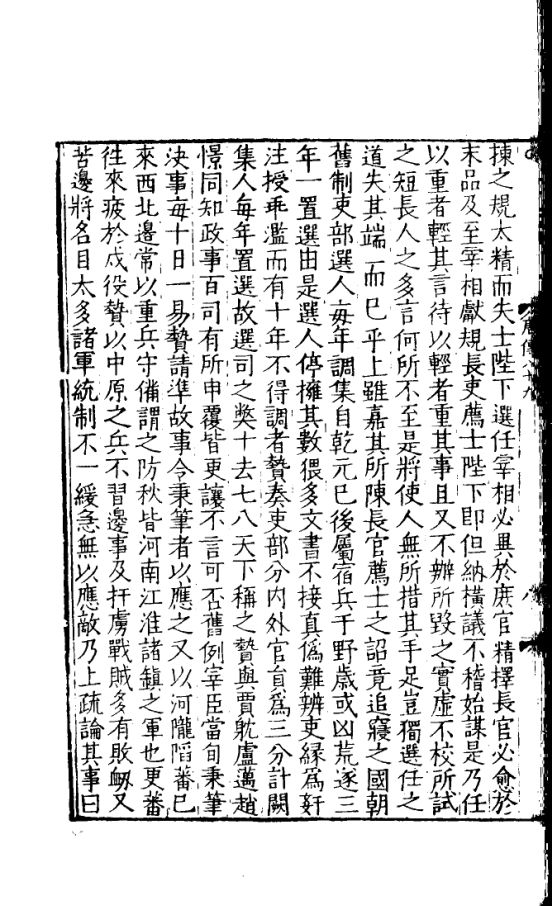 揀之規太精而失士陛下選任宰相必異於庶官精擇長官必愈於
末品及至宰相獻規長吏薦士陛下即但納橫議不稽始謀是乃任
以重者輕其言待以輕者重其事且又不辨所毀之實虛不校所試
之短長人之多言何所不至是將使人無所措其手足豈獨選任之
道失其端而巳乎上雖嘉其所陳長官薦士之詔竟追寢之國朝
舊制吏部選人每年調集自乾元巳後屬宿兵于野歲或凶荒遂三
年一置選由是選人停擁其數猥多文書不接真僞難辨吏緣爲姧
注授乖濫而有十年不得調者贄奏吏部分内外官負爲三分計闕
集人每年置選故選司之獘十去七八天下稱之贄與賈躭盧邁趙
憬同知政事百司有所申覆皆更讓不言可否舊例宰臣當旬秉筆
決事每十日一易贄請準故事令秉筆者以應之又以河隴陷蕃巳
來西北邊常以重兵守備謂之防秋皆河南江淮諸鎮之軍也更蕃
往來疲於戍役贄以中原之兵不習邊事及扞虜戰賊多有敗衂又
苦邊將名目太多諸軍統制不一緩急無以應敵乃上疏論其事曰